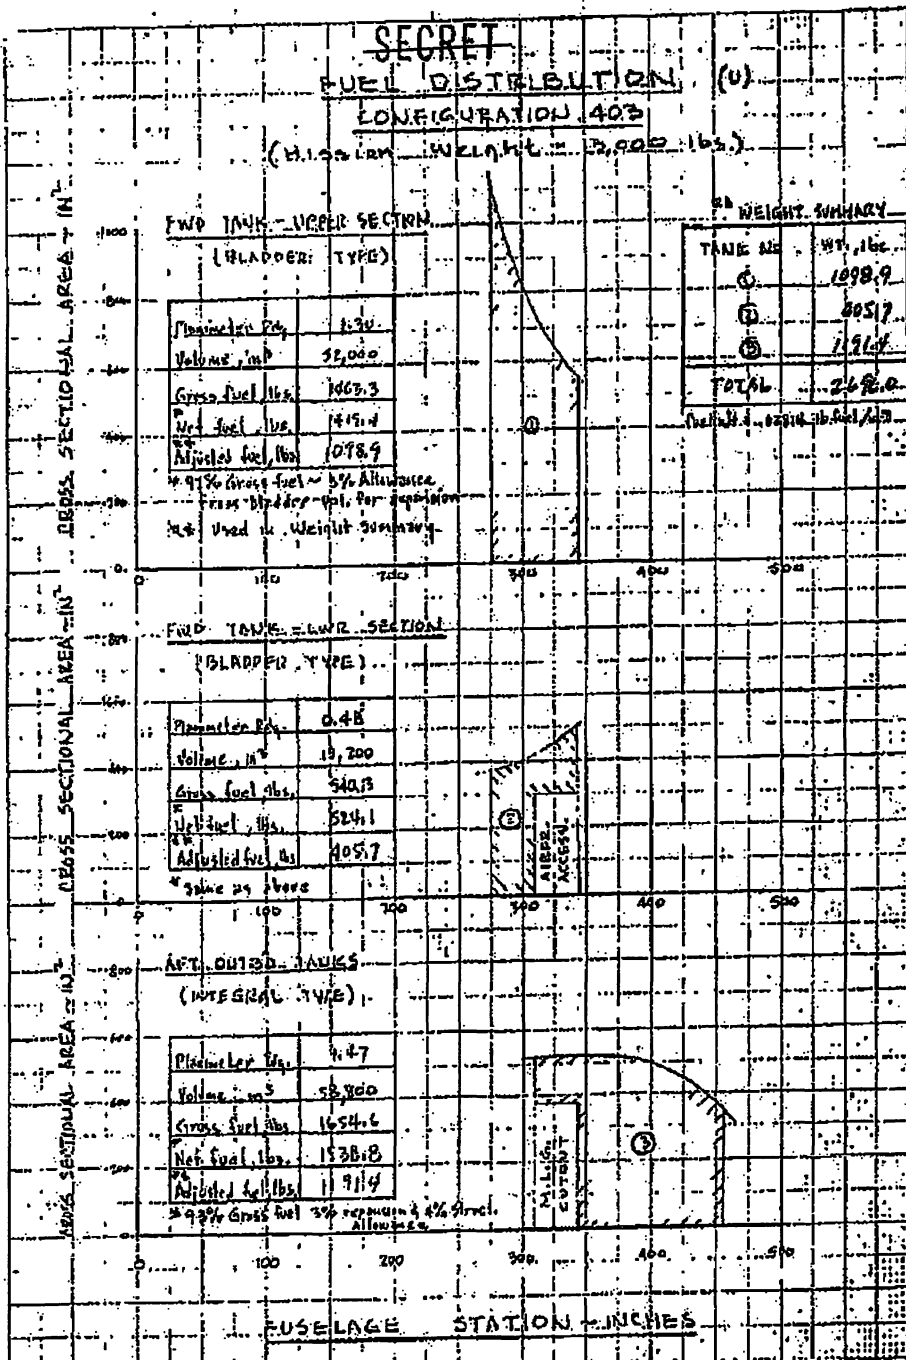 SECRET
FUEL DISTRIBUTION (U)
CONFIGURATION 403
(Mission Weight = 3,000 lbs.)
FWD TANK - UPPER SECTION
(BLADDER TYPE)
Planimeter Rdg. 1.30
Volume, in³ 52,000
Gross fuel, lbs. 1463.3
* Net fuel, lbs. 1419.4
** Adjusted fuel, lbs. 1098.9
* 97% Gross fuel ~ 3% Allowance
from bladder vol. for expansion
** Used in Weight Summary
** WEIGHT SUMMARY
TANK NO. WT., lbs
① 1098.9
② 405.7
③ 1191.4
TOTAL 2696.0
CROSS SECTIONAL AREA ~ IN²
0 100 200 300 400 500
FWD TANK - LWR SECTION
(BLADDER TYPE)
Planimeter Rdg. 0.48
Volume, in³ 19,200
Gross fuel, lbs. 540.3
* Net fuel, lbs. 524.1
** Adjusted fuel, lbs 405.7
* Same as above
②
AIRFR. ACCESS.
CROSS SECTIONAL AREA ~ IN²
0 100 200 300 400 500
AFT OUTBD TANKS
(INTEGRAL TYPE)
Planimeter Rdg. 1.47
Volume, in³ 58,800
Gross fuel, lbs 1654.6
* Net fuel, lbs. 1538.8
** Adjusted fuel, lbs. 1191.4
* 93% Gross fuel 3% expansion & 4% Struct.
Allowance
M.L.G. CUTOUT
③
CROSS SECTIONAL AREA ~ IN²
0 100 200 300 400 500
FUSELAGE STATION ~ INCHES